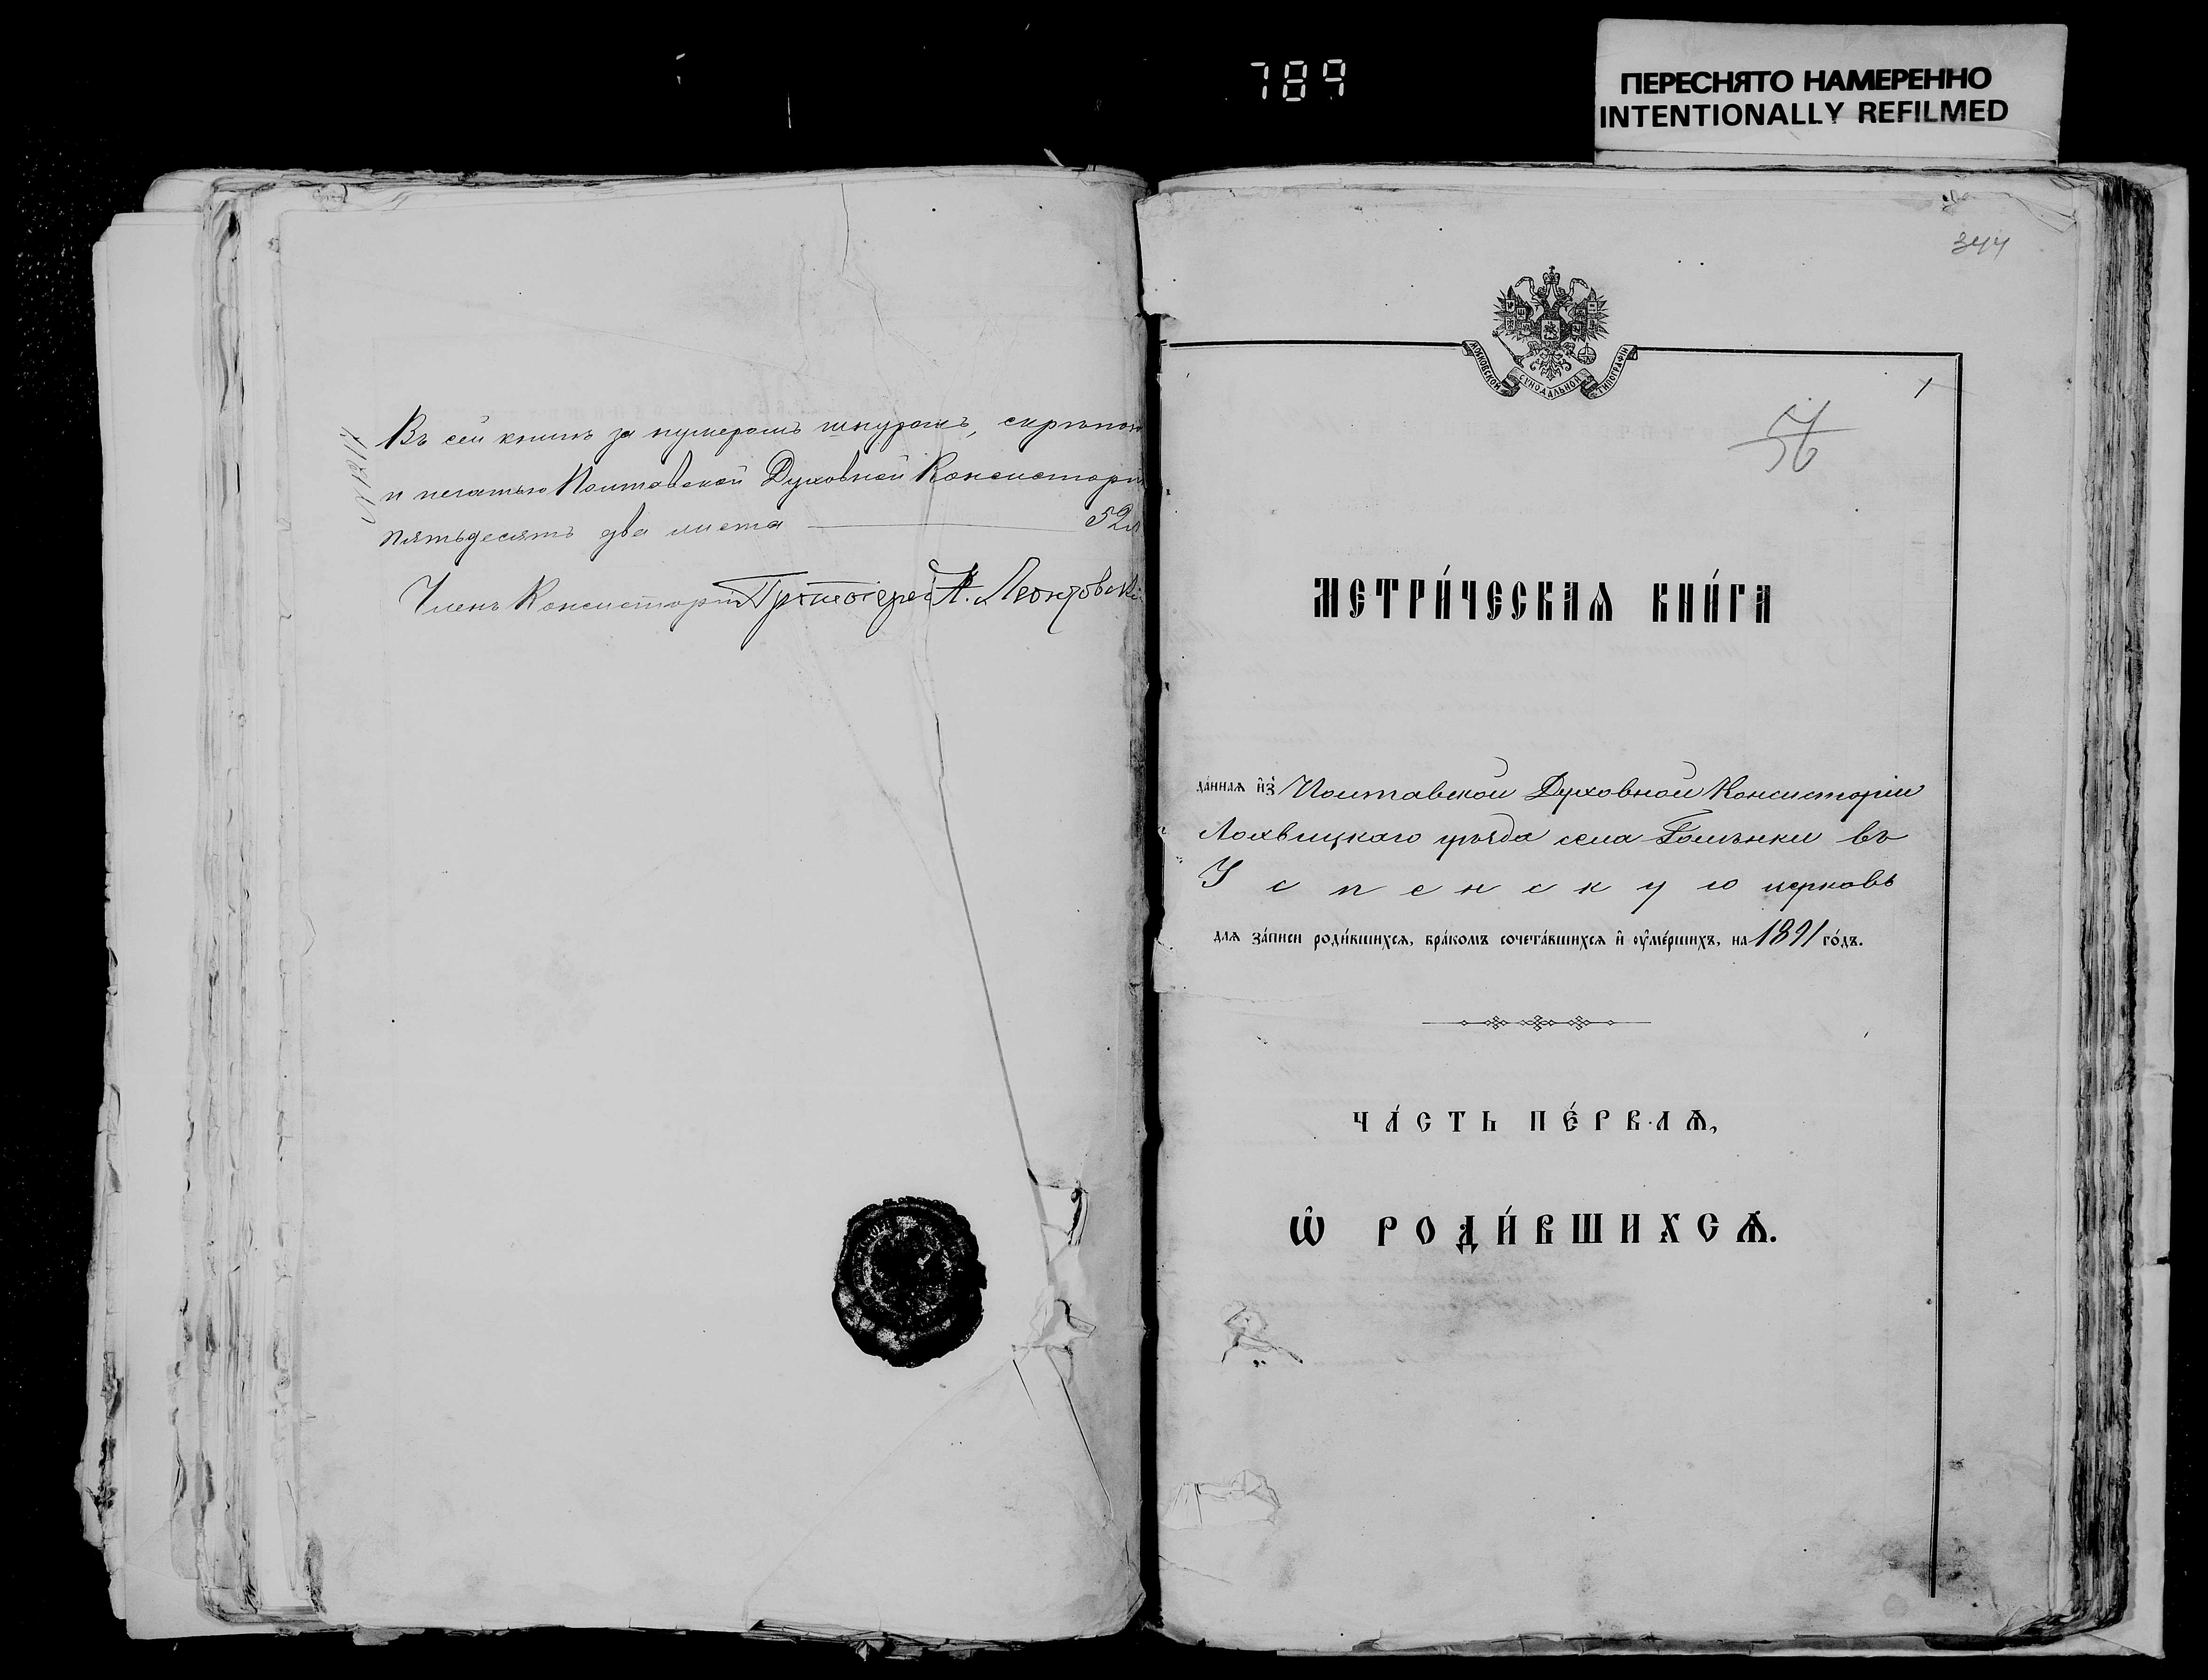 789
ПЕРЕСНЯТО НАМЕРЕННО
INTENTIONALLY REFILMED
Въ сей книгѣ за нумеромъ шнуромъ, скрѣпою
и печатью Полтавской Духовной Консисторіи
пятьдесятъ два листа 52
Членъ Консисторіи Протоіерей
344
МОСКОВСКОЙ СУНОДАЛЬНОЙ ТИПОГРАФІИ
1
56
МЕТРИ́ЧЕСКАѦ КНИ́ГА
да́ннаѧ и҆з̾ Полтавской Духовной Консисторіи
Лохвицкаго уѣзда села Голѣнки въ
Успенскую церковь
длѧ за́писи роди́вшихсѧ, бра́комъ сочета́вшихсѧ и҆ ᲂу҆ме́ршихъ, на 1891 го́дъ.
ЧА́СТЬ ПЕ́РВАѦ,
Ѡ҆ РОДИ́ВШИХСѦ.